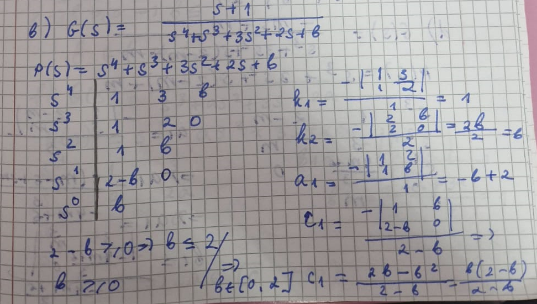 в) G(s) = (s+1)/(s⁴+s³+3s²+2s+b)
P(s) = s⁴+s³+3s²+2s+b
s⁴ | 1 3 b
s³ | 1 2 0
s² | 1 b
s¹ | 2-b 0
s⁰ | b
2-b ≥ 0 => b ≤ 2
b ≥ 0
=> b ∈ [0, 2]
k₁ = -|1 3; 1 2|/1 = 1
k₂ = -|2 b; 2 0|/2 = 2b/2 = b
a₁ = -|1 2; 1 b|/1 = -b+2
c₁ = -|1 b; 2-b 0|/(2-b) =>
c₁ = (2b-b²)/(2-b) = b(2-b)/(2-b)